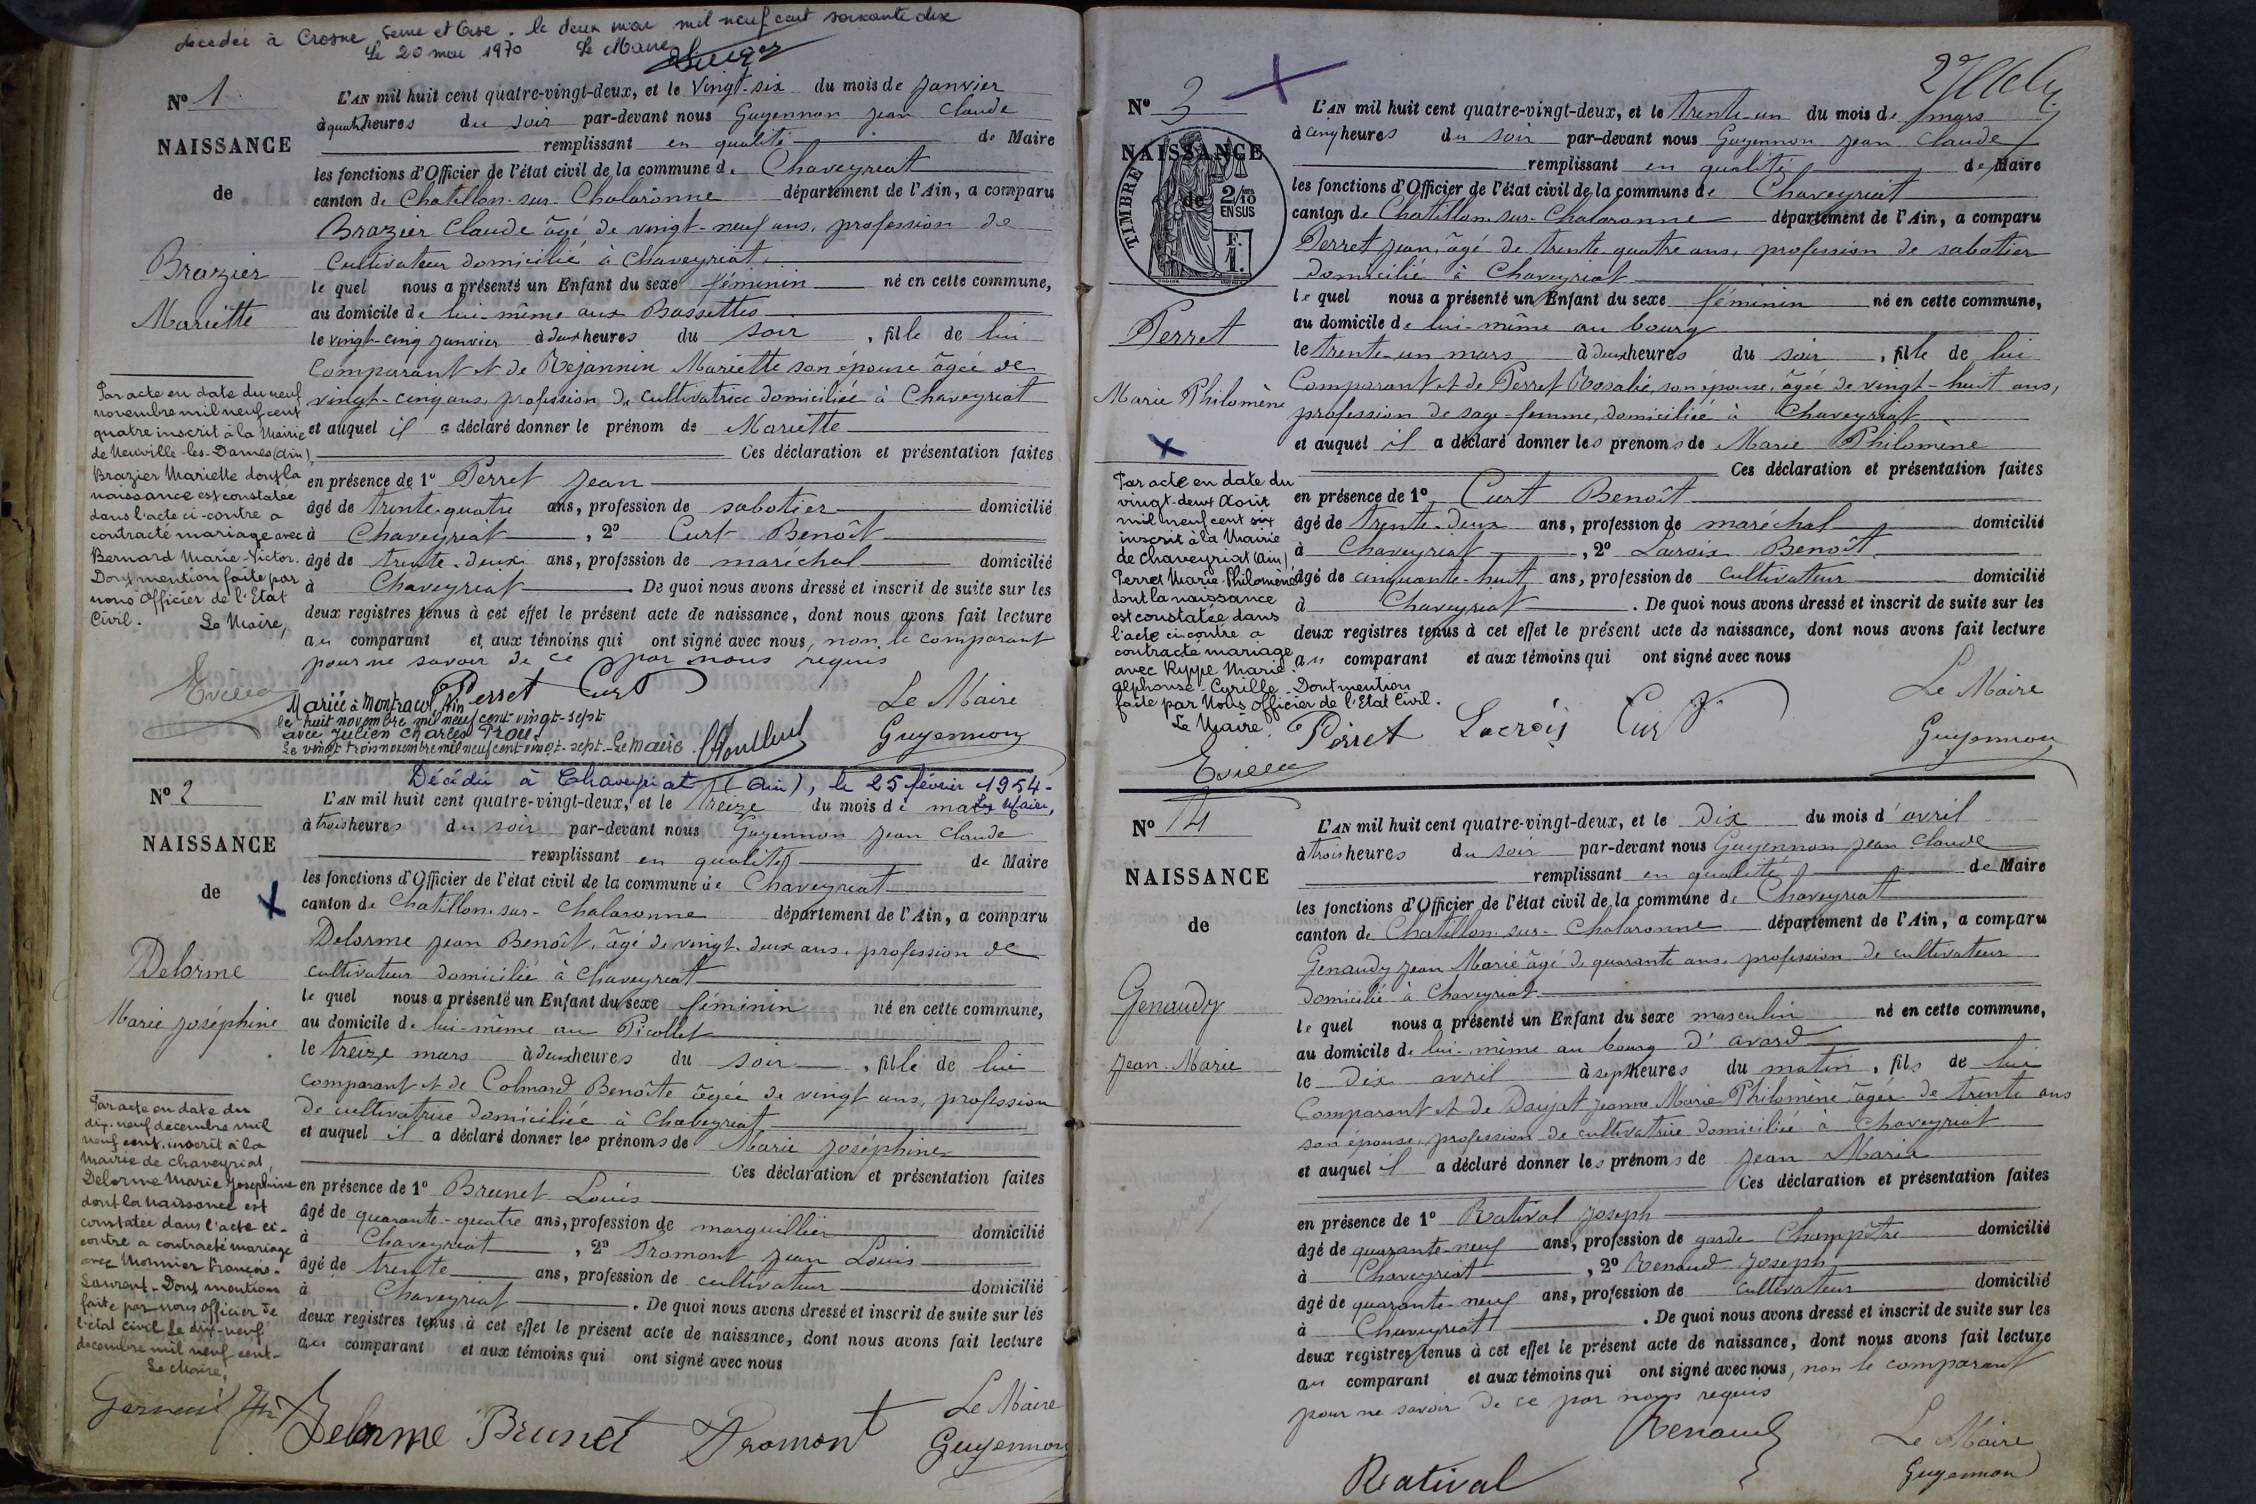 decedée à Crosne, Seine et Oise. le deux mai mil neuf cent soixante dix
Le 20 mai 1970 Le Maire
N° 1
NAISSANCE
de
Brazier
Mariette
L'AN mil huit cent quatre-vingt-deux, et le vingt-six du mois de janvier
à quatre heures du soir par-devant nous Guyennon Jean Claude
remplissant en qualité de Maire
les fonctions d'Officier de l'état civil de la commune de Chaveyriat
canton de Chatillon-sur-Chalaronne département de l'Ain, a comparu
Brazier Claude âgé de vingt-neuf ans, profession de
Cultivateur domicilié à Chaveyriat
le quel nous a présenté un Enfant du sexe féminin né en cette commune,
au domicile de lui-même aux Bassettes
le vingt-cinq janvier à deux heures du soir, fille de lui
comparant et de Rejannin Mariette son épouse âgée de
vingt-cinq ans, profession de cultivatrice domiciliée à Chaveyriat
et auquel il a déclaré donner le prénom de Mariette
Ces déclaration et présentation faites
en présence de 1° Perret Jean
âgé de trente-quatre ans, profession de sabotier domicilié
à Chaveyriat, 2° Curt Benoît
âgé de trente-deux ans, profession de maréchal domicilié
à Chaveyriat. De quoi nous avons dressé et inscrit de suite sur les
deux registres tenus à cet effet le présent acte de naissance, dont nous avons fait lecture
au comparant et aux témoins qui ont signé avec nous, non le comparant
pour ne savoir de ce par nous requis
Perret Curt
Le Maire
Guyennon
Par acte en date du neuf
novembre mil neuf cent
quatre inscrit à la Mairie
de Neuville-les-Dames (Ain),
Brazier Mariette dont la
naissance est constatée
dans l'acte ci-contre a
contracté mariage avec
Bernard Marie-Victor.
Dont mention faite par
nous Officier de l'Etat
Civil. Le Maire,
Mariée à Montracol Ain
le huit novembre mil neuf cent vingt-sept
avec Julien Charles
Le vingt trois novembre mil neuf cent vingt-sept. Le Maire
Décédée à Chaveyriat (Ain), le 25 février 1954-
Le Maire,
N° 2
NAISSANCE
de
Delorme
Marie Joséphine
L'AN mil huit cent quatre-vingt-deux, et le treize du mois de mars
à trois heures du soir par-devant nous Guyennon Jean Claude
remplissant en qualité de Maire
les fonctions d'Officier de l'état civil de la commune de Chaveyriat
canton de Chatillon-sur-Chalaronne département de l'Ain, a comparu
Delorme Jean Benoît, âgé de vingt-deux ans, profession de
cultivateur domicilié à Chaveyriat
le quel nous a présenté un Enfant du sexe féminin né en cette commune,
au domicile de lui-même au Picollet
le treize mars à deux heures du soir, fille de lui
comparant et de Colmard Benoîte âgée de vingt ans, profession
de cultivatrice domiciliée à Chaveyriat
et auquel il a déclaré donner les prénoms de Marie Joséphine
Ces déclaration et présentation faites
en présence de 1° Brunet Louis
âgé de quarante-quatre ans, profession de marguillier domicilié
à Chaveyriat, 2° Tromont Jean Louis
âgé de trente ans, profession de cultivateur domicilié
à Chaveyriat. De quoi nous avons dressé et inscrit de suite sur les
deux registres tenus à cet effet le présent acte de naissance, dont nous avons fait lecture
au comparant et aux témoins qui ont signé avec nous
Delorme Brunet Dromont
Le Maire
Guyennon
Par acte en date du
dix-neuf décembre mil
neuf cent, inscrit à la
Mairie de Chaveyriat,
Delorme Marie Josephine
dont la naissance est
constatée dans l'acte ci-
contre a contracté mariage
avec Monnier François-
Laurent. Dont mention
faite par nous officier de
l'état civil le dix-neuf
décembre mil neuf cent.
Le Maire,
N° 3
NAISSANCE
de
TIMBRE
2/10
EN SUS
F.
1.
Perret
Marie Philomène
L'AN mil huit cent quatre-vingt-deux, et le trente-un du mois de mars
à cinq heures du soir par-devant nous Guyennon Jean Claude
remplissant en qualité de Maire
les fonctions d'Officier de l'état civil de la commune de Chaveyriat
canton de Chatillon-sur-Chalaronne département de l'Ain, a comparu
Perret Jean, âgé de trente-quatre ans, profession de sabotier
domicilié à Chaveyriat
le quel nous a présenté un Enfant du sexe féminin né en cette commune,
au domicile de lui-même au bourg
le trente-un mars à deux heures du soir, fille de lui
Comparant et de Perret Rosalie, son épouse, âgée de vingt-huit ans,
profession de sage-femme, domiciliée à Chaveyriat
et auquel il a déclaré donner les prénoms de Marie Philomène
Ces déclaration et présentation faites
en présence de 1° Curt Benoît
âgé de trente-deux ans, profession de maréchal domicilié
à Chaveyriat, 2° Lacroix Benoît
âgé de cinquante-huit ans, profession de cultivateur domicilié
à Chaveyriat. De quoi nous avons dressé et inscrit de suite sur les
deux registres tenus à cet effet le présent acte de naissance, dont nous avons fait lecture
au comparant et aux témoins qui ont signé avec nous
Perret Lacroix Curt
Le Maire
Guyennon
Par acte en date du
vingt-deux Août
mil neuf cent six
inscrit à la Mairie
de Chaveyriat (Ain)
Perret Marie-Philomène
dont la naissance
est constatée dans
l'acte ci contre a
contracté mariage
avec Ryppe Marie-
Alphonse-Cyrille. Dont mention
faite par Nous Officier de l'Etat Civil.
Le Maire,
N° 4
NAISSANCE
de
Genaudy
Jean-Marie
L'AN mil huit cent quatre-vingt-deux, et le dix du mois d'avril
à trois heures du soir par-devant nous Guyennon Jean Claude
remplissant en qualité de Maire
les fonctions d'Officier de l'état civil de la commune de Chaveyriat
canton de Chatillon-sur-Chalaronne département de l'Ain, a comparu
Genaudy Jean Marie âgé de quarante ans, profession de cultivateur
domicilié à Chaveyriat
le quel nous a présenté un Enfant du sexe masculin né en cette commune,
au domicile de lui-même au bourg d'avard
le dix avril à sept heures du matin, fils de lui
Comparant et de Daujat Jeanne Marie Philomène âgée de trente ans
son épouse, profession de cultivatrice domiciliée à Chaveyriat
et auquel il a déclaré donner les prénoms de Jean Marie
Ces déclaration et présentation faites
en présence de 1° Ratival Joseph
âgé de quarante-neuf ans, profession de garde Champêtre domicilié
à Chaveyriat, 2° Renaud Joseph
âgé de quarante-neuf ans, profession de cultivateur domicilié
à Chaveyriat. De quoi nous avons dressé et inscrit de suite sur les
deux registres tenus à cet effet le présent acte de naissance, dont nous avons fait lecture
au comparant et aux témoins qui ont signé avec nous, non le comparant
pour ne savoir de ce par nous requis
Renaud
Ratival
Le Maire
Guyennon